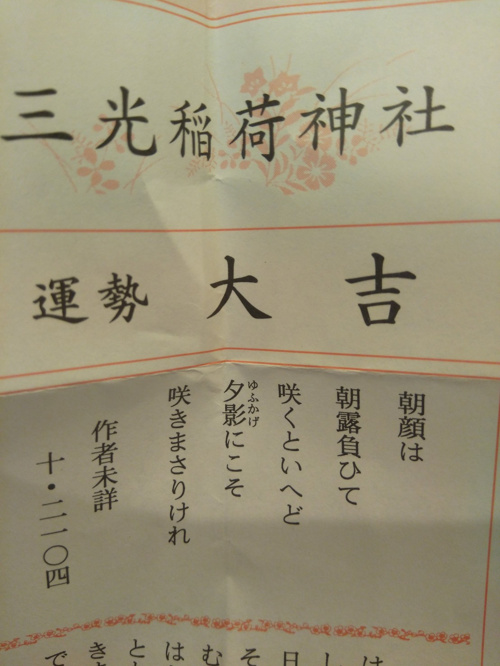 三光稲荷神社
運勢 大吉
朝顔は
朝露負ひて
咲くといへど
夕影にこそ
ゆふかげ
咲きまさりけれ
作者未詳
十・二一〇四